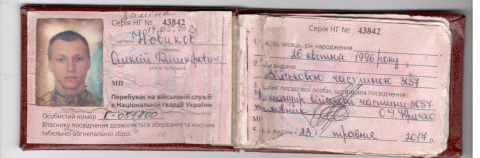 Серія НГ № 43842
Новиков
Олексій Дмитрович
МП
Перебуває на військовій службі
в Національній гвардії України
Особистий номер Г-057800
Власнику посвідчення дозволяється зберігання та носіння
табельної вогнепальної зброї
Серія НГ № 43842
1. Число, місяць, рік народження
16 квітня 1996 року
2. Ким видано
військовою частиною 3057
3. посадової особи, що видала посвідчення
Командир військової частини 3057
полковник
МП
4. 23 травня 2017